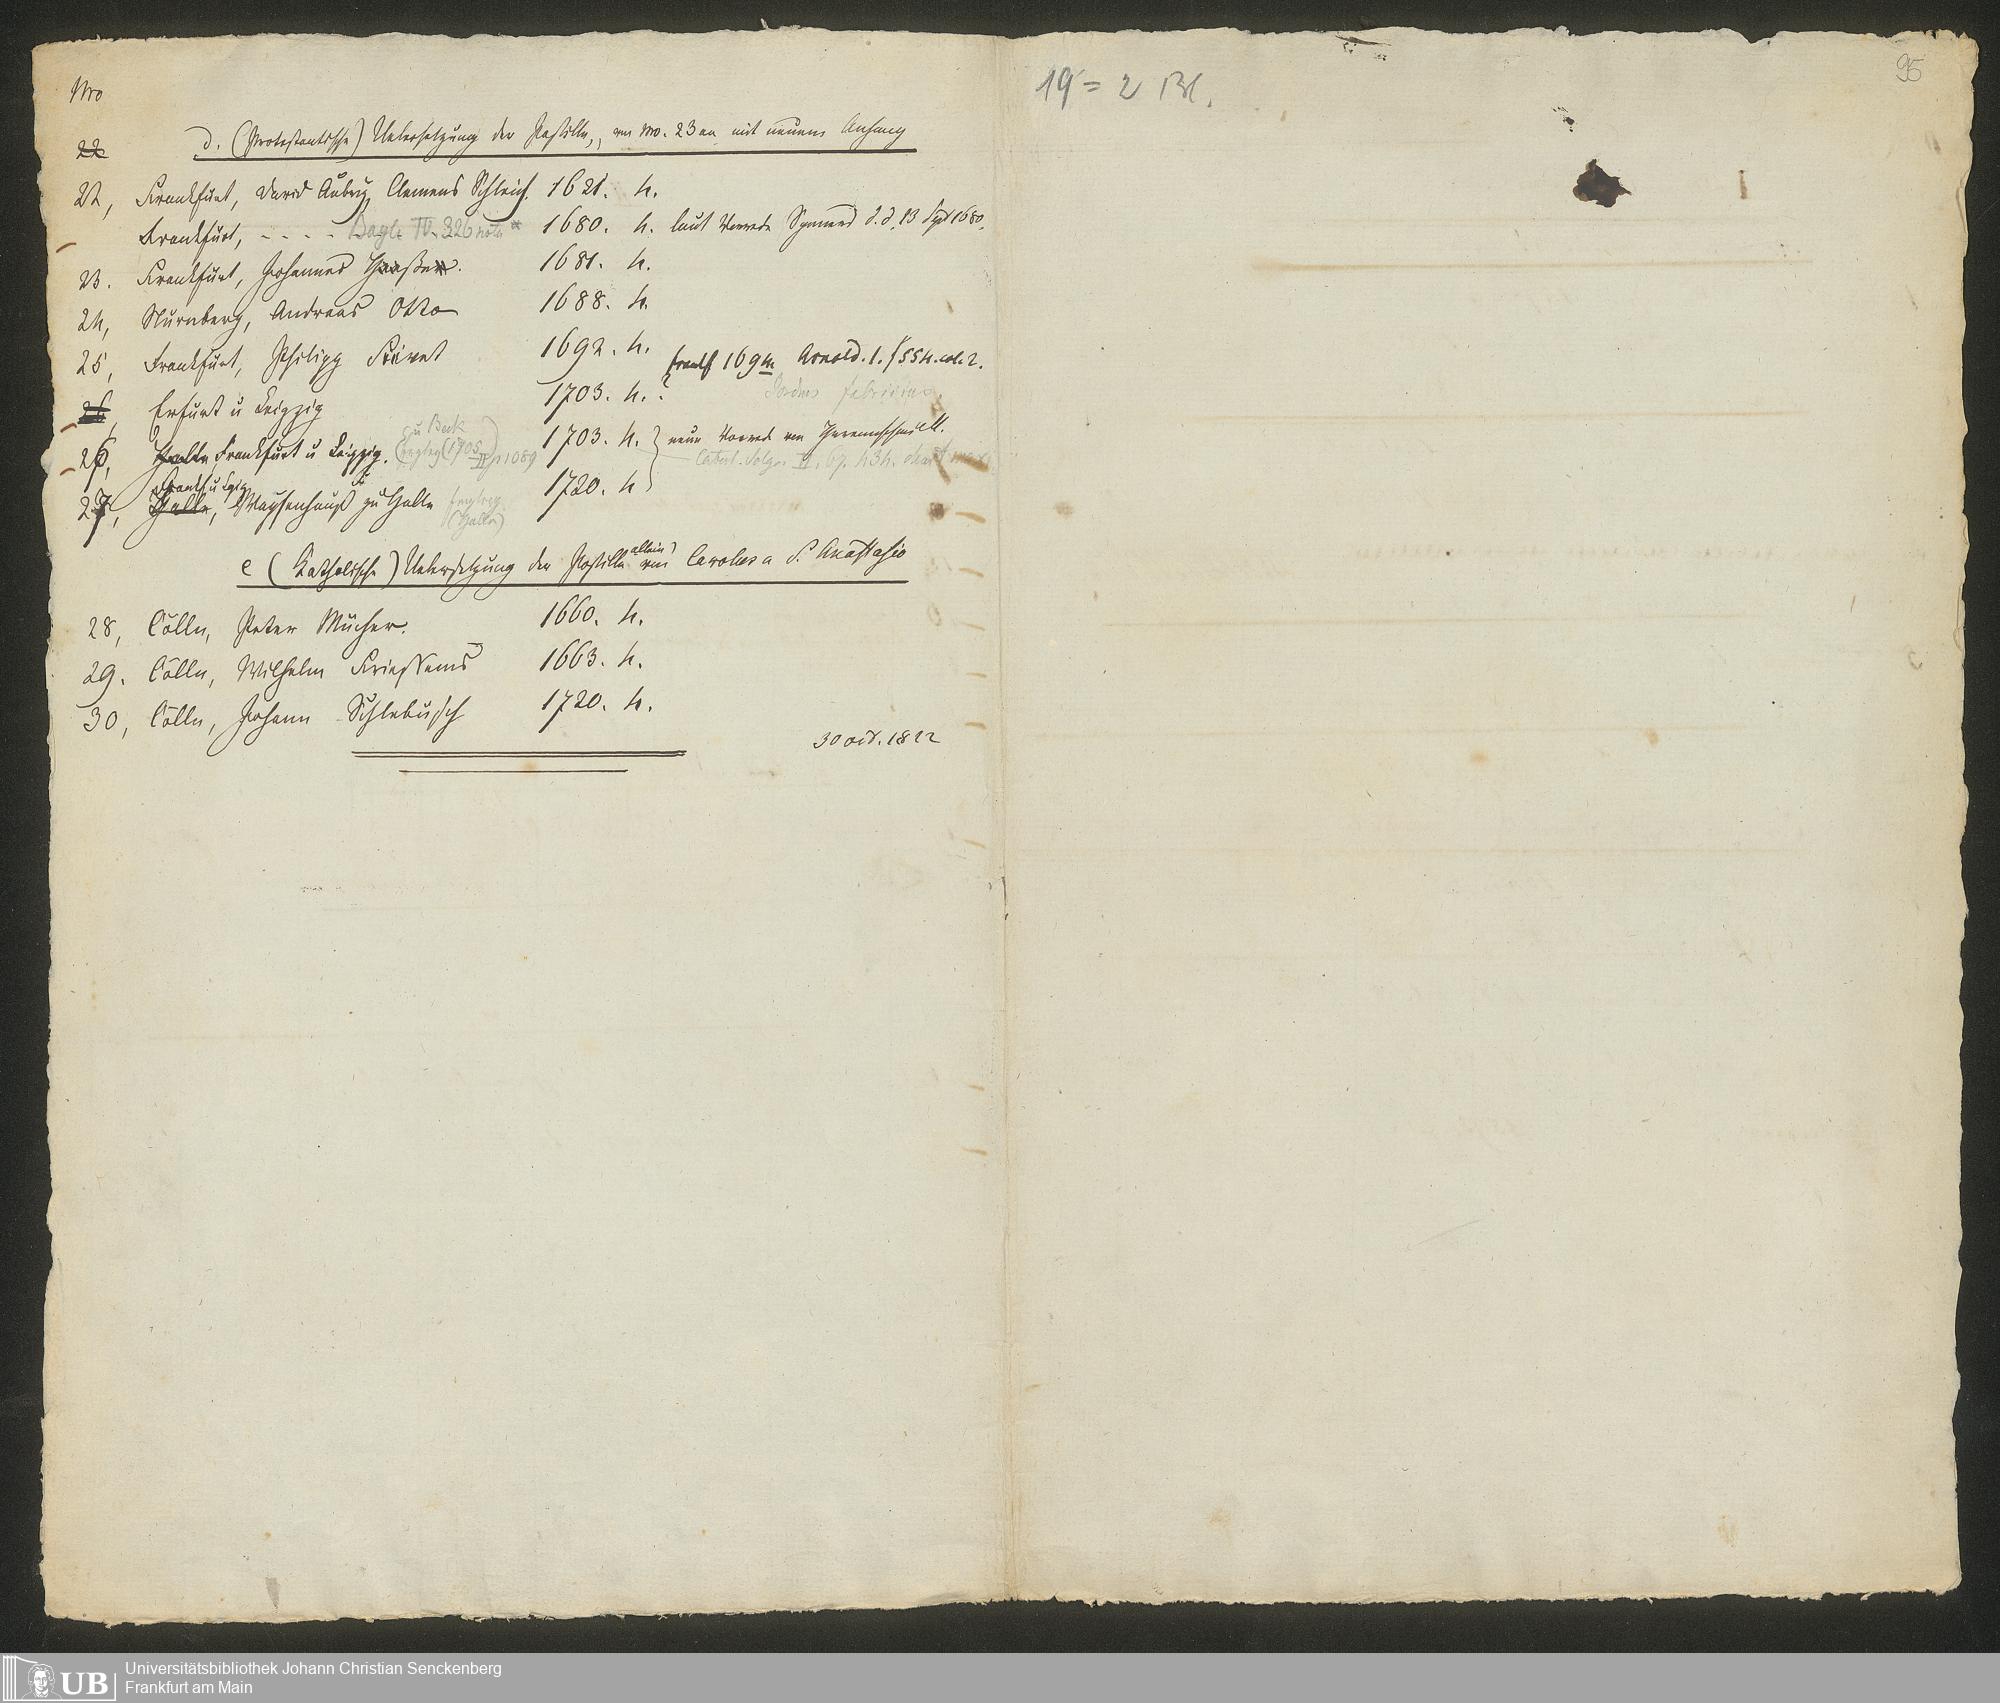 Nro
22
d. (Protestantische) Uebersetzung der Postille, von No. 23 an mit neuem Anfang
22, Frankfurt, David Aubry, Clemens Schleich. 1621. 4.
Frankfurt, - - - - 326 note * 1680. 4. laut Vorrede Speners d. d. 13 Spt 1680.
23. Frankfurt, Johannes Haaßen. 1681. 4.
24, Nürnberg, Andreas Otto 1688. 4.
25, Frankfurt, Philipp Fievet 1692. 4. Frankf 169 Arnold. 1. 554. col. 2.
26, Erfurt u Leipzig 1703. 4. ?
26, Halle Frankfurt u Leipzig. u Beck (1705 II p 1089 1703. 4. } neue Vorrede von
Frankf u Lpzg
27, Halle, Waysenhauß zu Halle (Halle) 1720. 4
e (Katholische) Uebersetzung der Postille allein von Carolus a S. Anastasio
28, Cölln, Peter Mücher. 1660. 4.
29. Cölln, Wilhelm Friessems 1663. 4.
30, Cölln, Johann Schlebusch 1720. 4.
30 oct. 1822
19 = 2 Bl.
95
UB
Universitätsbibliothek Johann Christian Senckenberg
Frankfurt am Main